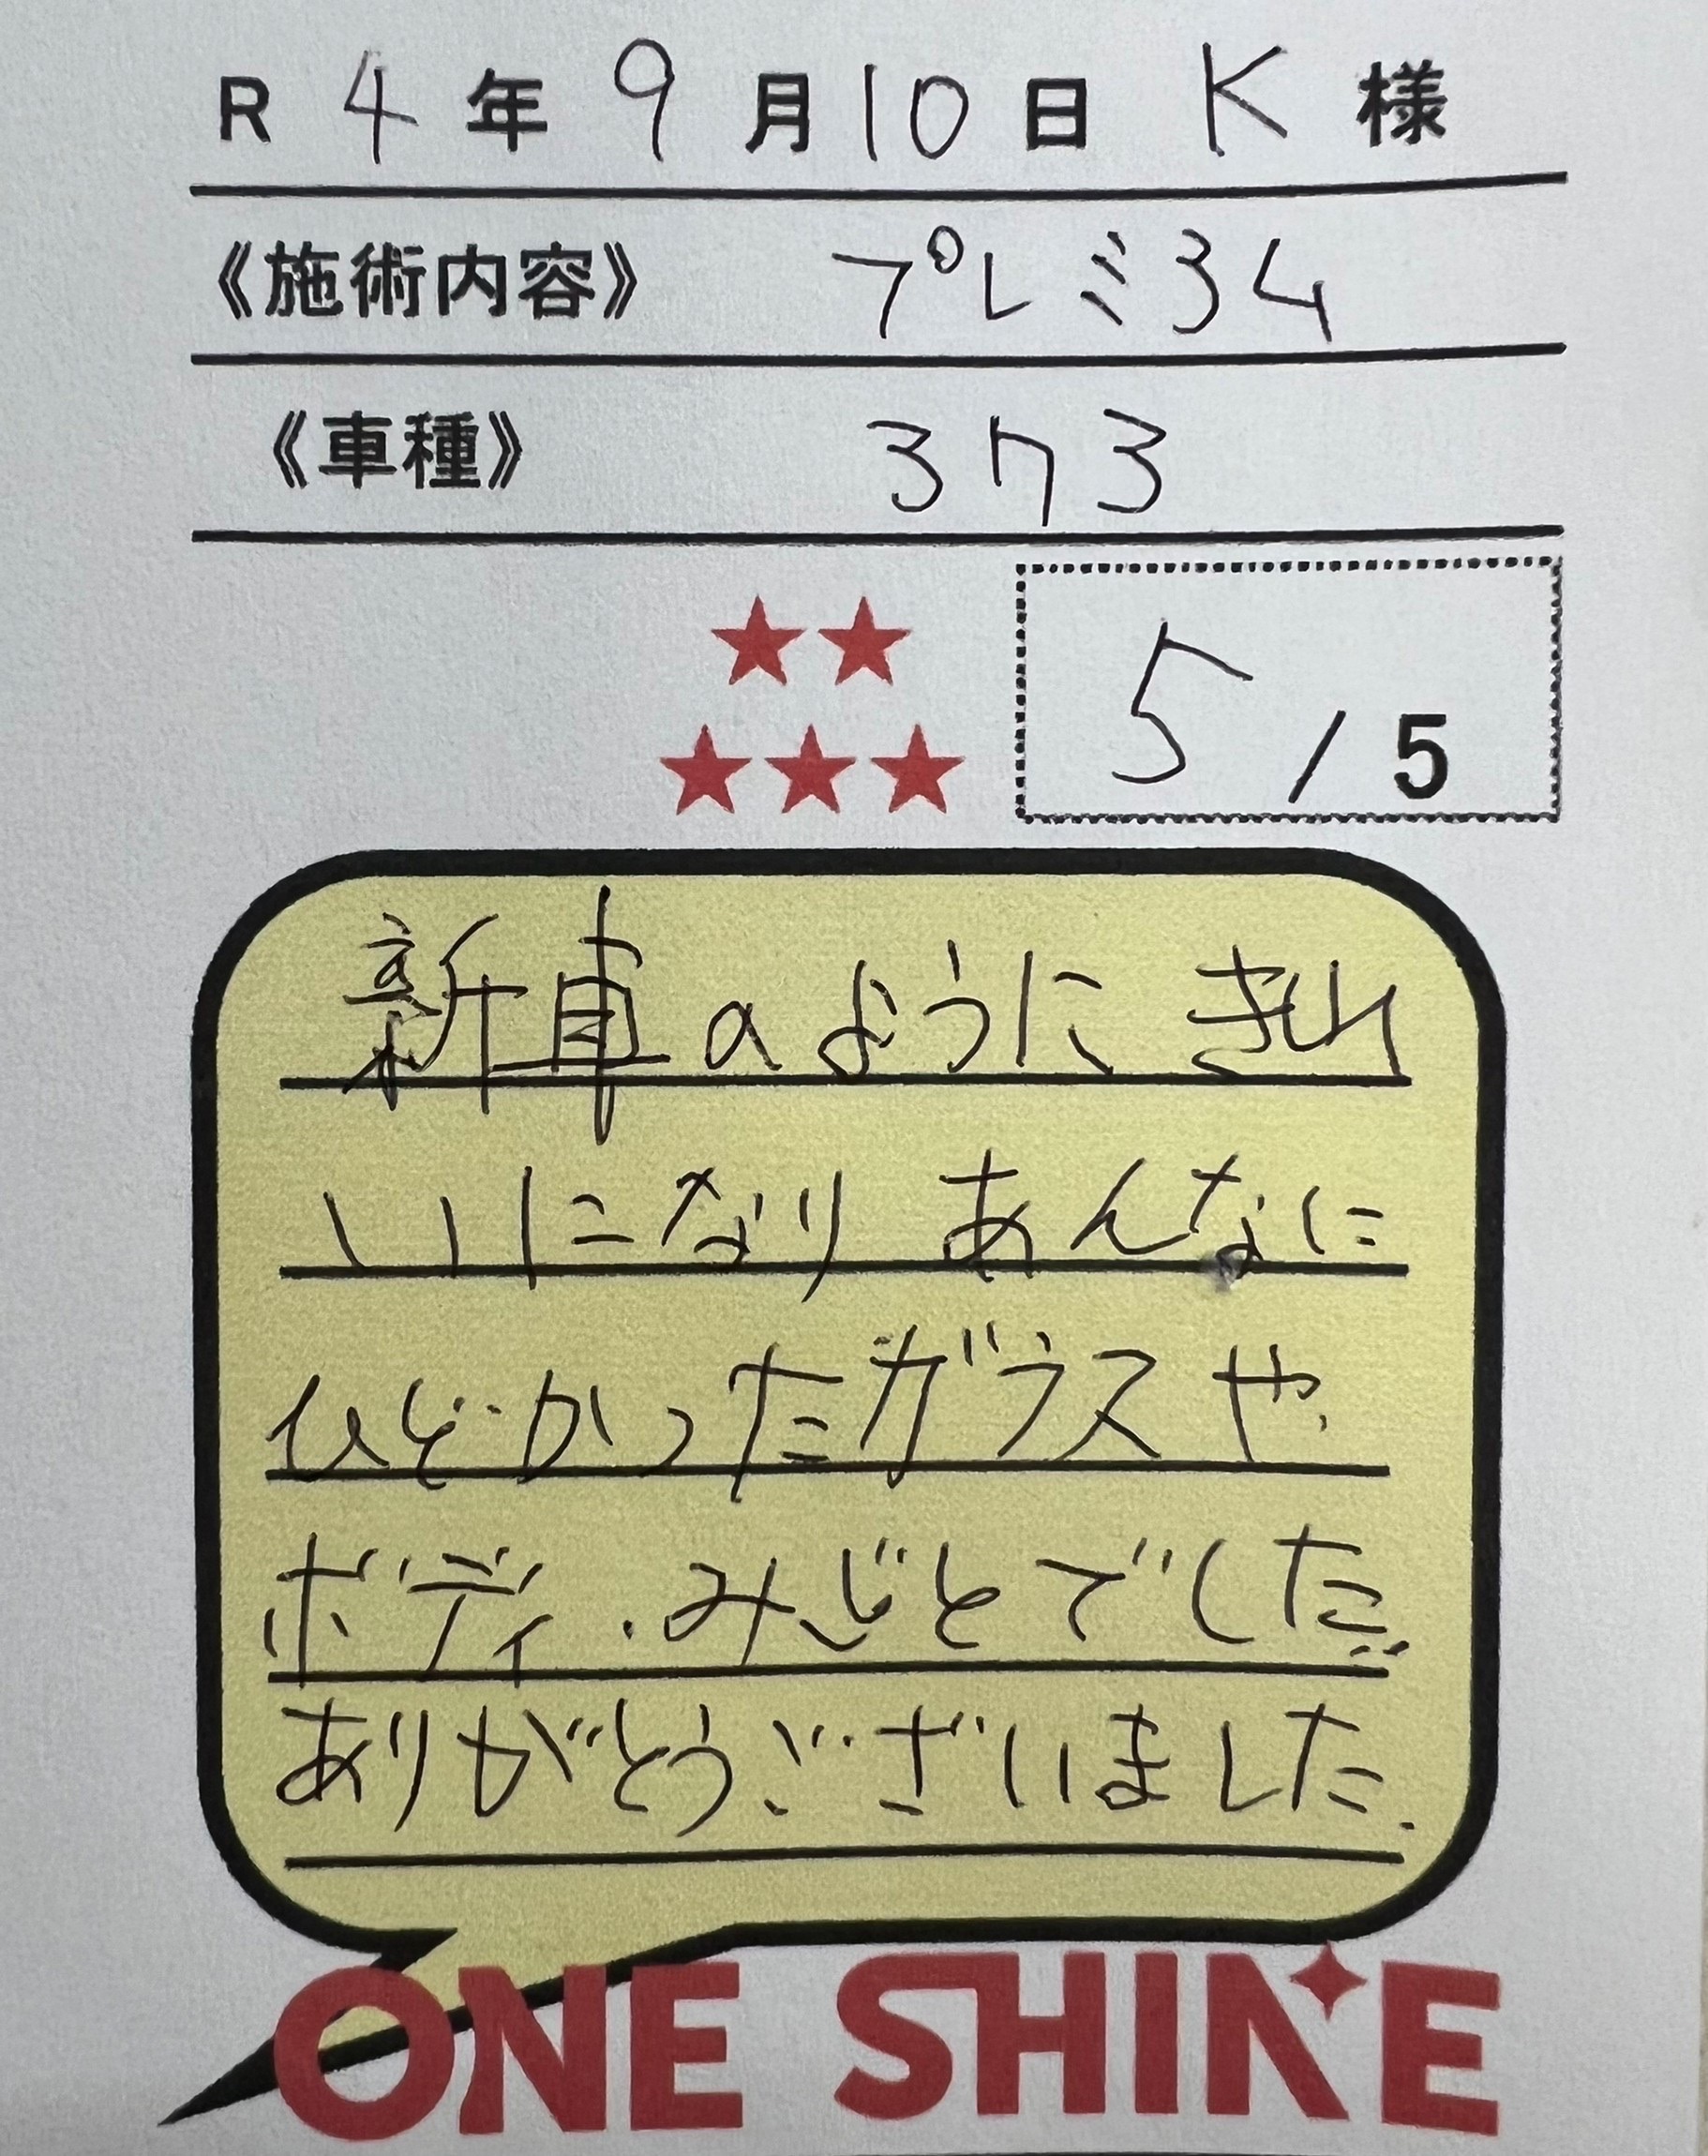 R 4 年 9 月 10 日 K 様
《施術内容》 プレミ34
《車種》 373
5 / 5
新車のように きれ
いになり あんなに
ひどかったガラスや
ボディ.みごとでした
ありがとうございました.
ONE SHINE